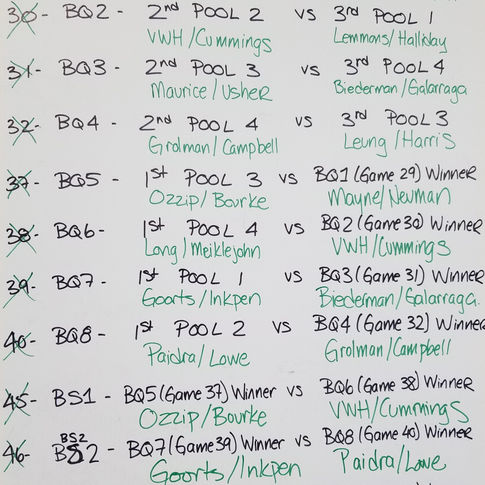 30- BQ2 - 2nd POOL 2 vs 3rd POOL 1
VWH/Cummings Lemmons/Halliday
31- BQ3 - 2nd POOL 3 vs 3rd POOL 4
Maurice/Usher Biederman/Galarraga
32- BQ4 - 2nd POOL 4 vs 3rd POOL 3
Grolman/Campbell Leung/Harris
37- BQ5 - 1st POOL 3 vs BQ1 (Game 29) Winner
Ozzip/Bourke Mayne/Newman
38- BQ6- 1st POOL 4 vs BQ2 (Game 30) Winner
Long/Meiklejohn VWH/Cummings
39- BQ7- 1st POOL 1 vs BQ3 (Game 31) Winner
Goorts/Inkpen Biederman/Galarraga.
40- BQ8- 1st POOL 2 vs BQ4 (Game 32) Winner
Paidra/Lowe Grolman/Campbell
45- BS1 - BQ5 (Game 37) Winner vs BQ6 (Game 38) Winner
Ozzip/Bourke VWH/Cummings
BS2
46- BS2 - BQ7 (Game 39) Winner vs BQ8 (Game 40) Winner
Goorts/Inkpen Paidra/Lowe